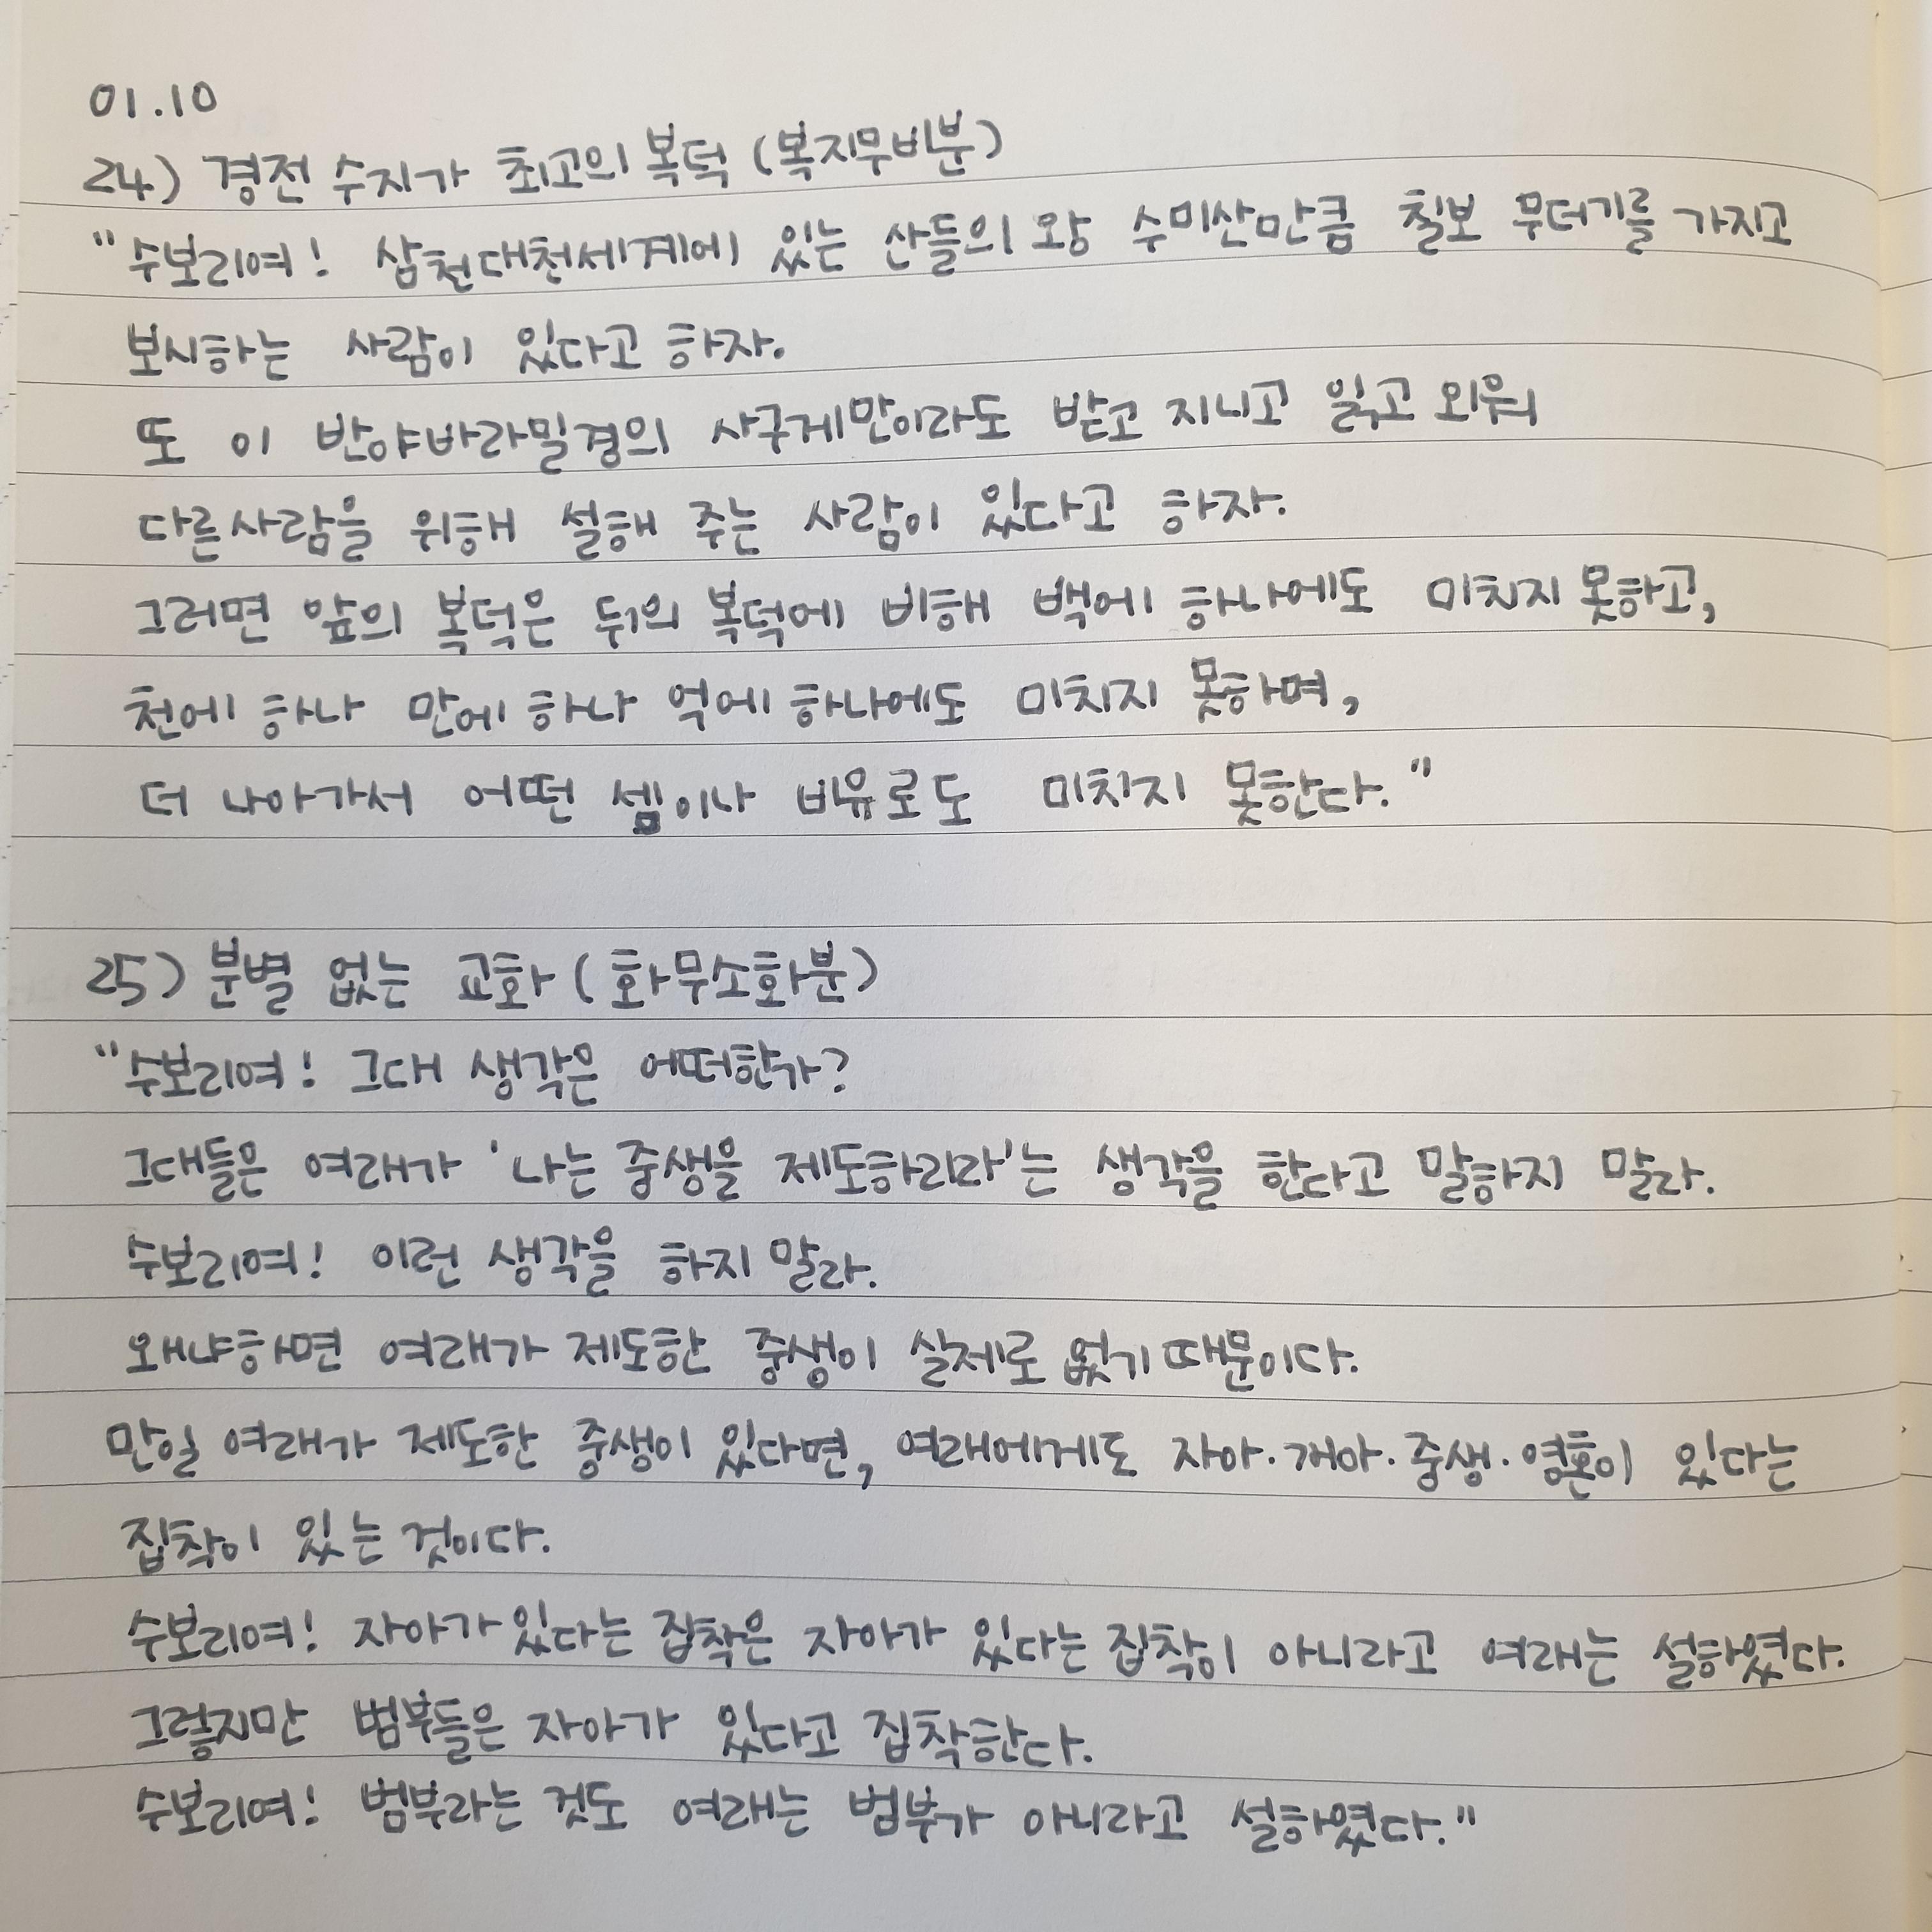 01.10
24) 경전 수지가 최고의 복덕 (복지무비분)
"수보리여! 삼천대천세계에 있는 산들의 왕 수미산만큼 칠보 무더기를 가지고
보시하는 사람이 있다고 하자.
또 이 반야바라밀경의 사구게만이라도 받고 지니고 읽고 외워
다른사람을 위해 설해 주는 사람이 있다고 하자.
그러면 앞의 복덕은 뒤의 복덕에 비해 백에 하나에도 미치지 못하고,
천에 하나 만에 하나 억에 하나에도 미치지 못하며,
더 나아가서 어떤 셈이나 비유로도 미치지 못한다."
25) 분별 없는 교화 (화무소화분)
"수보리여! 그대 생각은 어떠한가?
그대들은 여래가 '나는 중생을 제도하리라'는 생각을 한다고 말하지 말라.
수보리여! 이런 생각을 하지 말라.
왜냐하면 여래가 제도한 중생이 실제로 없기 때문이다.
만일 여래가 제도한 중생이 있다면, 여래에게도 자아·개아·중생·영혼이 있다는
집착이 있는 것이다.
수보리여! 자아가 있다는 집착은 자아가 있다는 집착이 아니라고 여래는 설하였다.
그렇지만 범부들은 자아가 있다고 집착한다.
수보리여! 범부라는 것도 여래는 범부가 아니라고 설하였다."